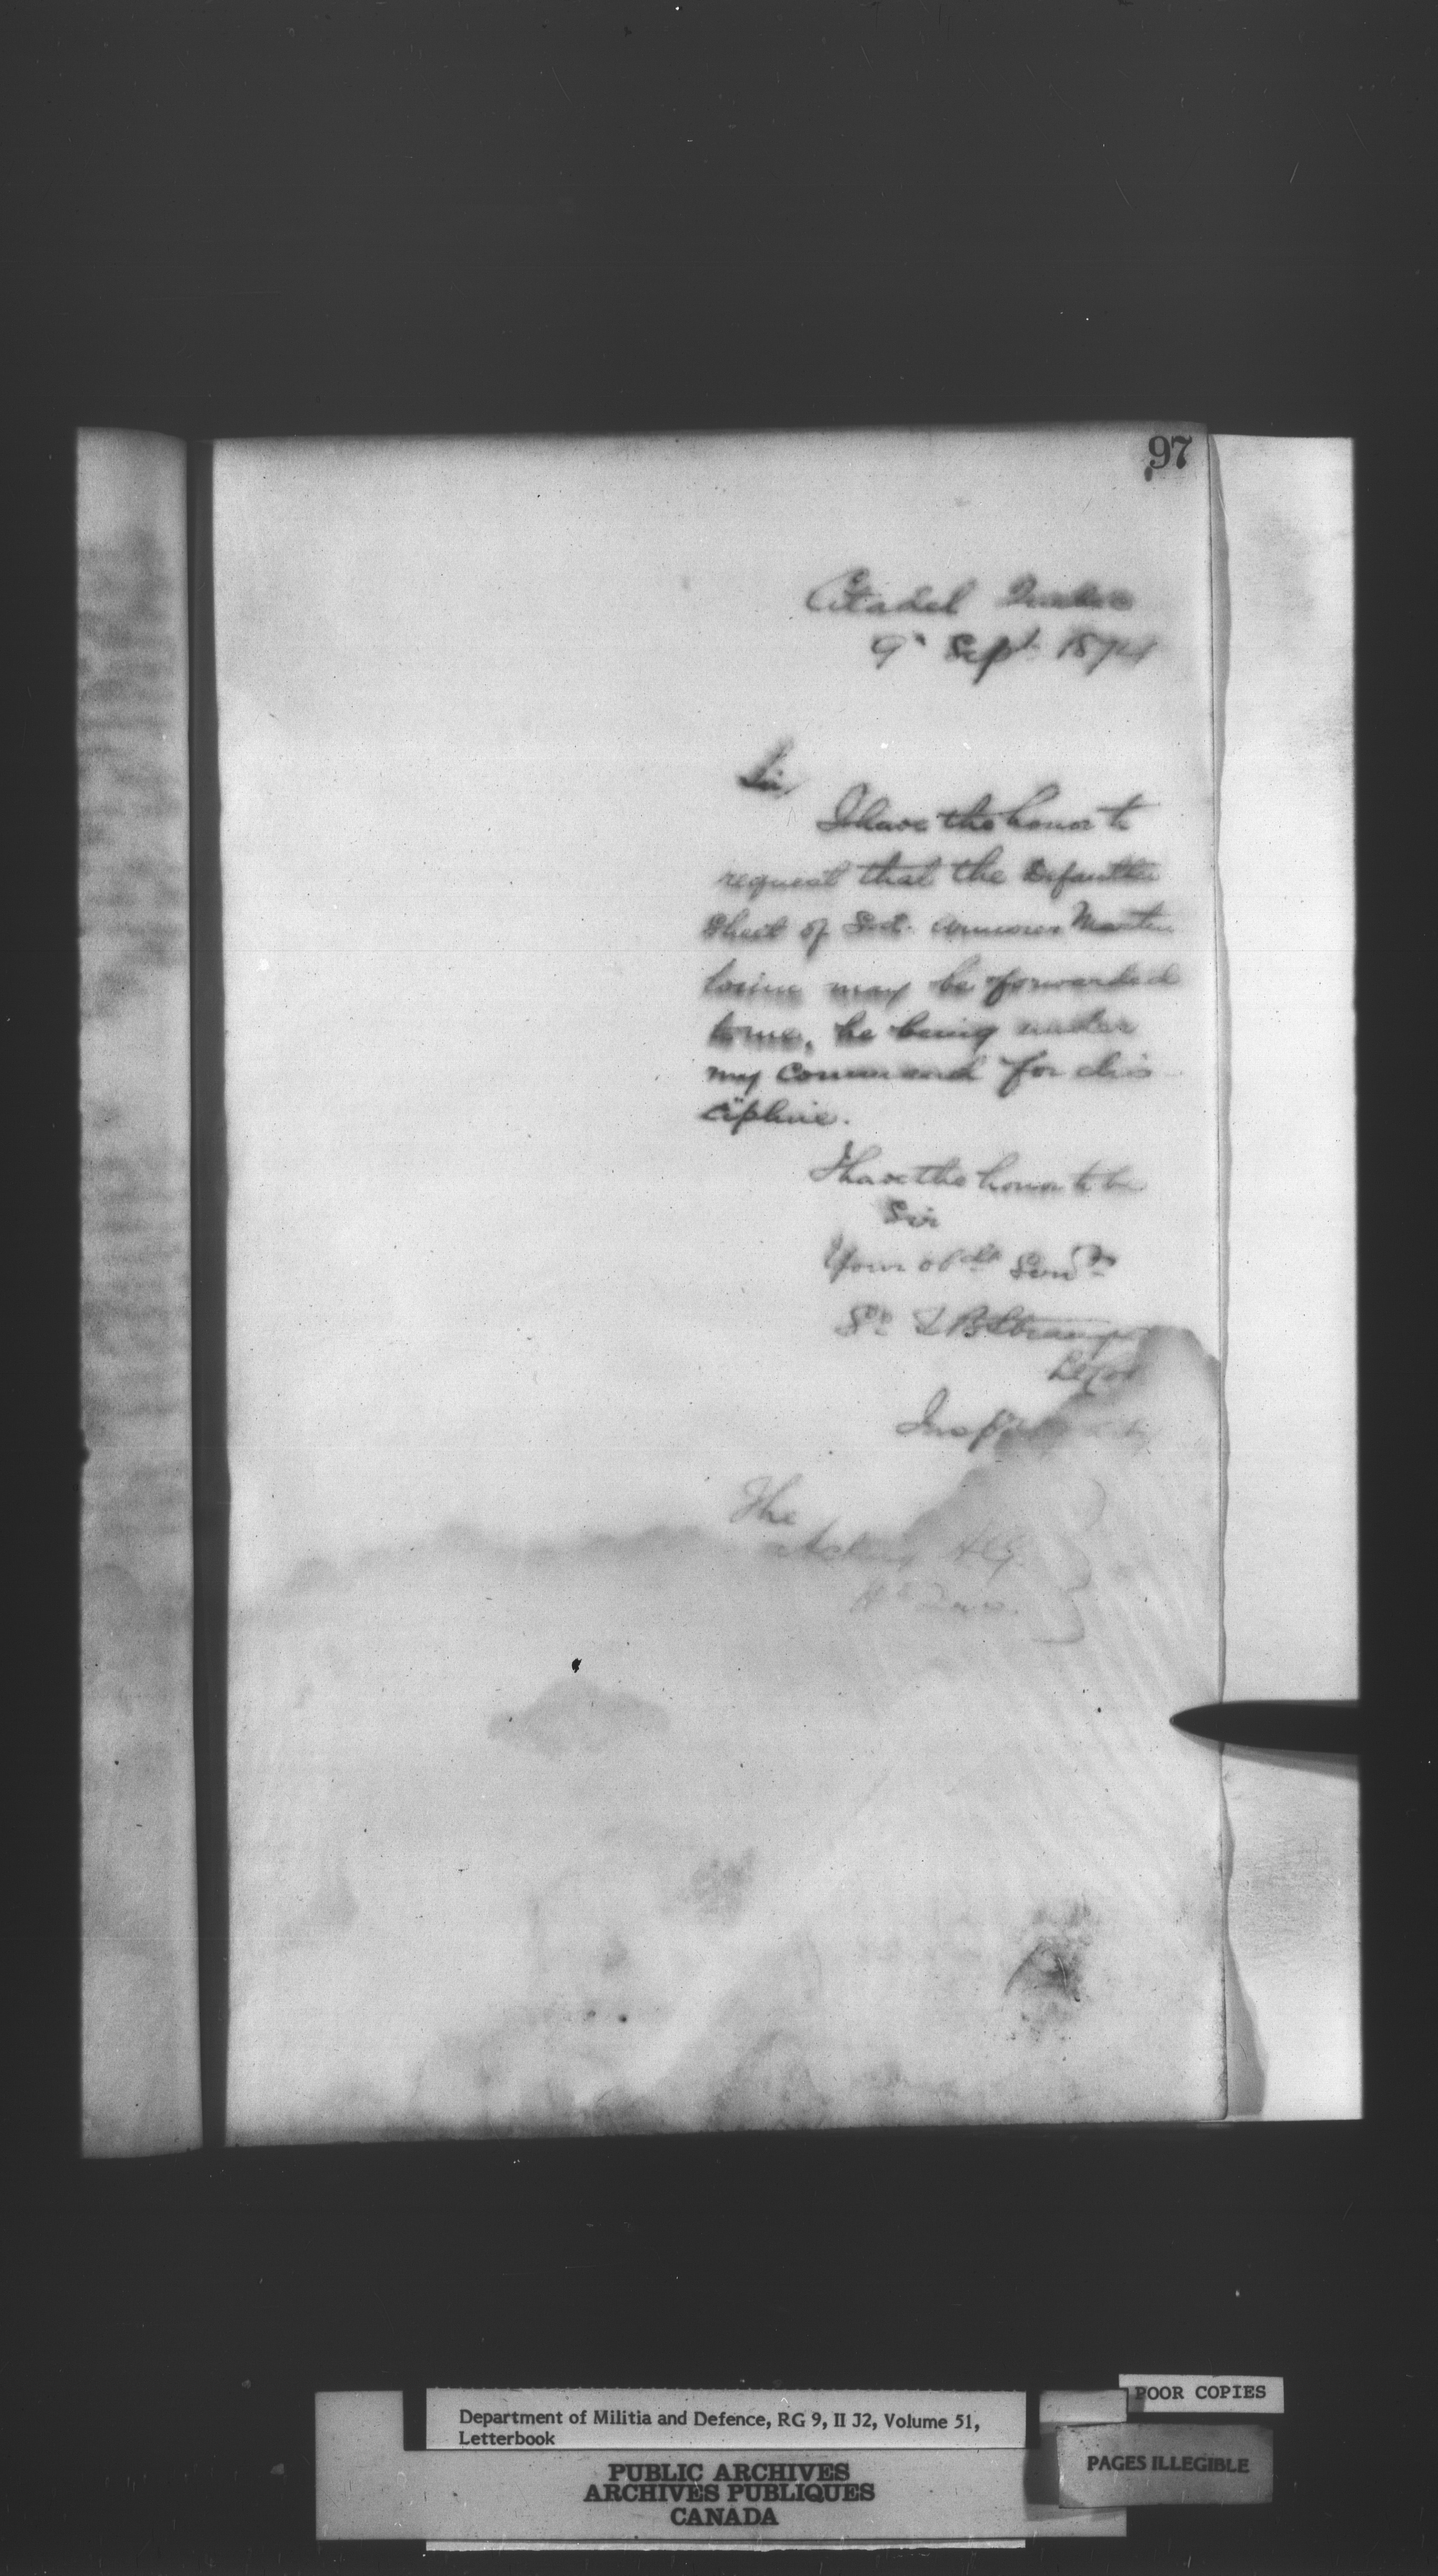 97
Citadel Quebec
9th Sept 1874
Sir,
I have the honor to
request that the Defaulter
Sheet of Armorer Martin
may be forwarded
to me, he being under
my command for dis
cipline.
I have the honor to be
Sir
Your obdt Servt
Sd T B Strange
Lt Col
Insp
The
Acting A G
Hd Qrs.
POOR COPIES
Department of Militia and Defence, RG 9, II J2, Volume 51,
Letterbook
PAGES ILLEGIBLE
PUBLIC ARCHIVES
ARCHIVES PUBLIQUES
CANADA